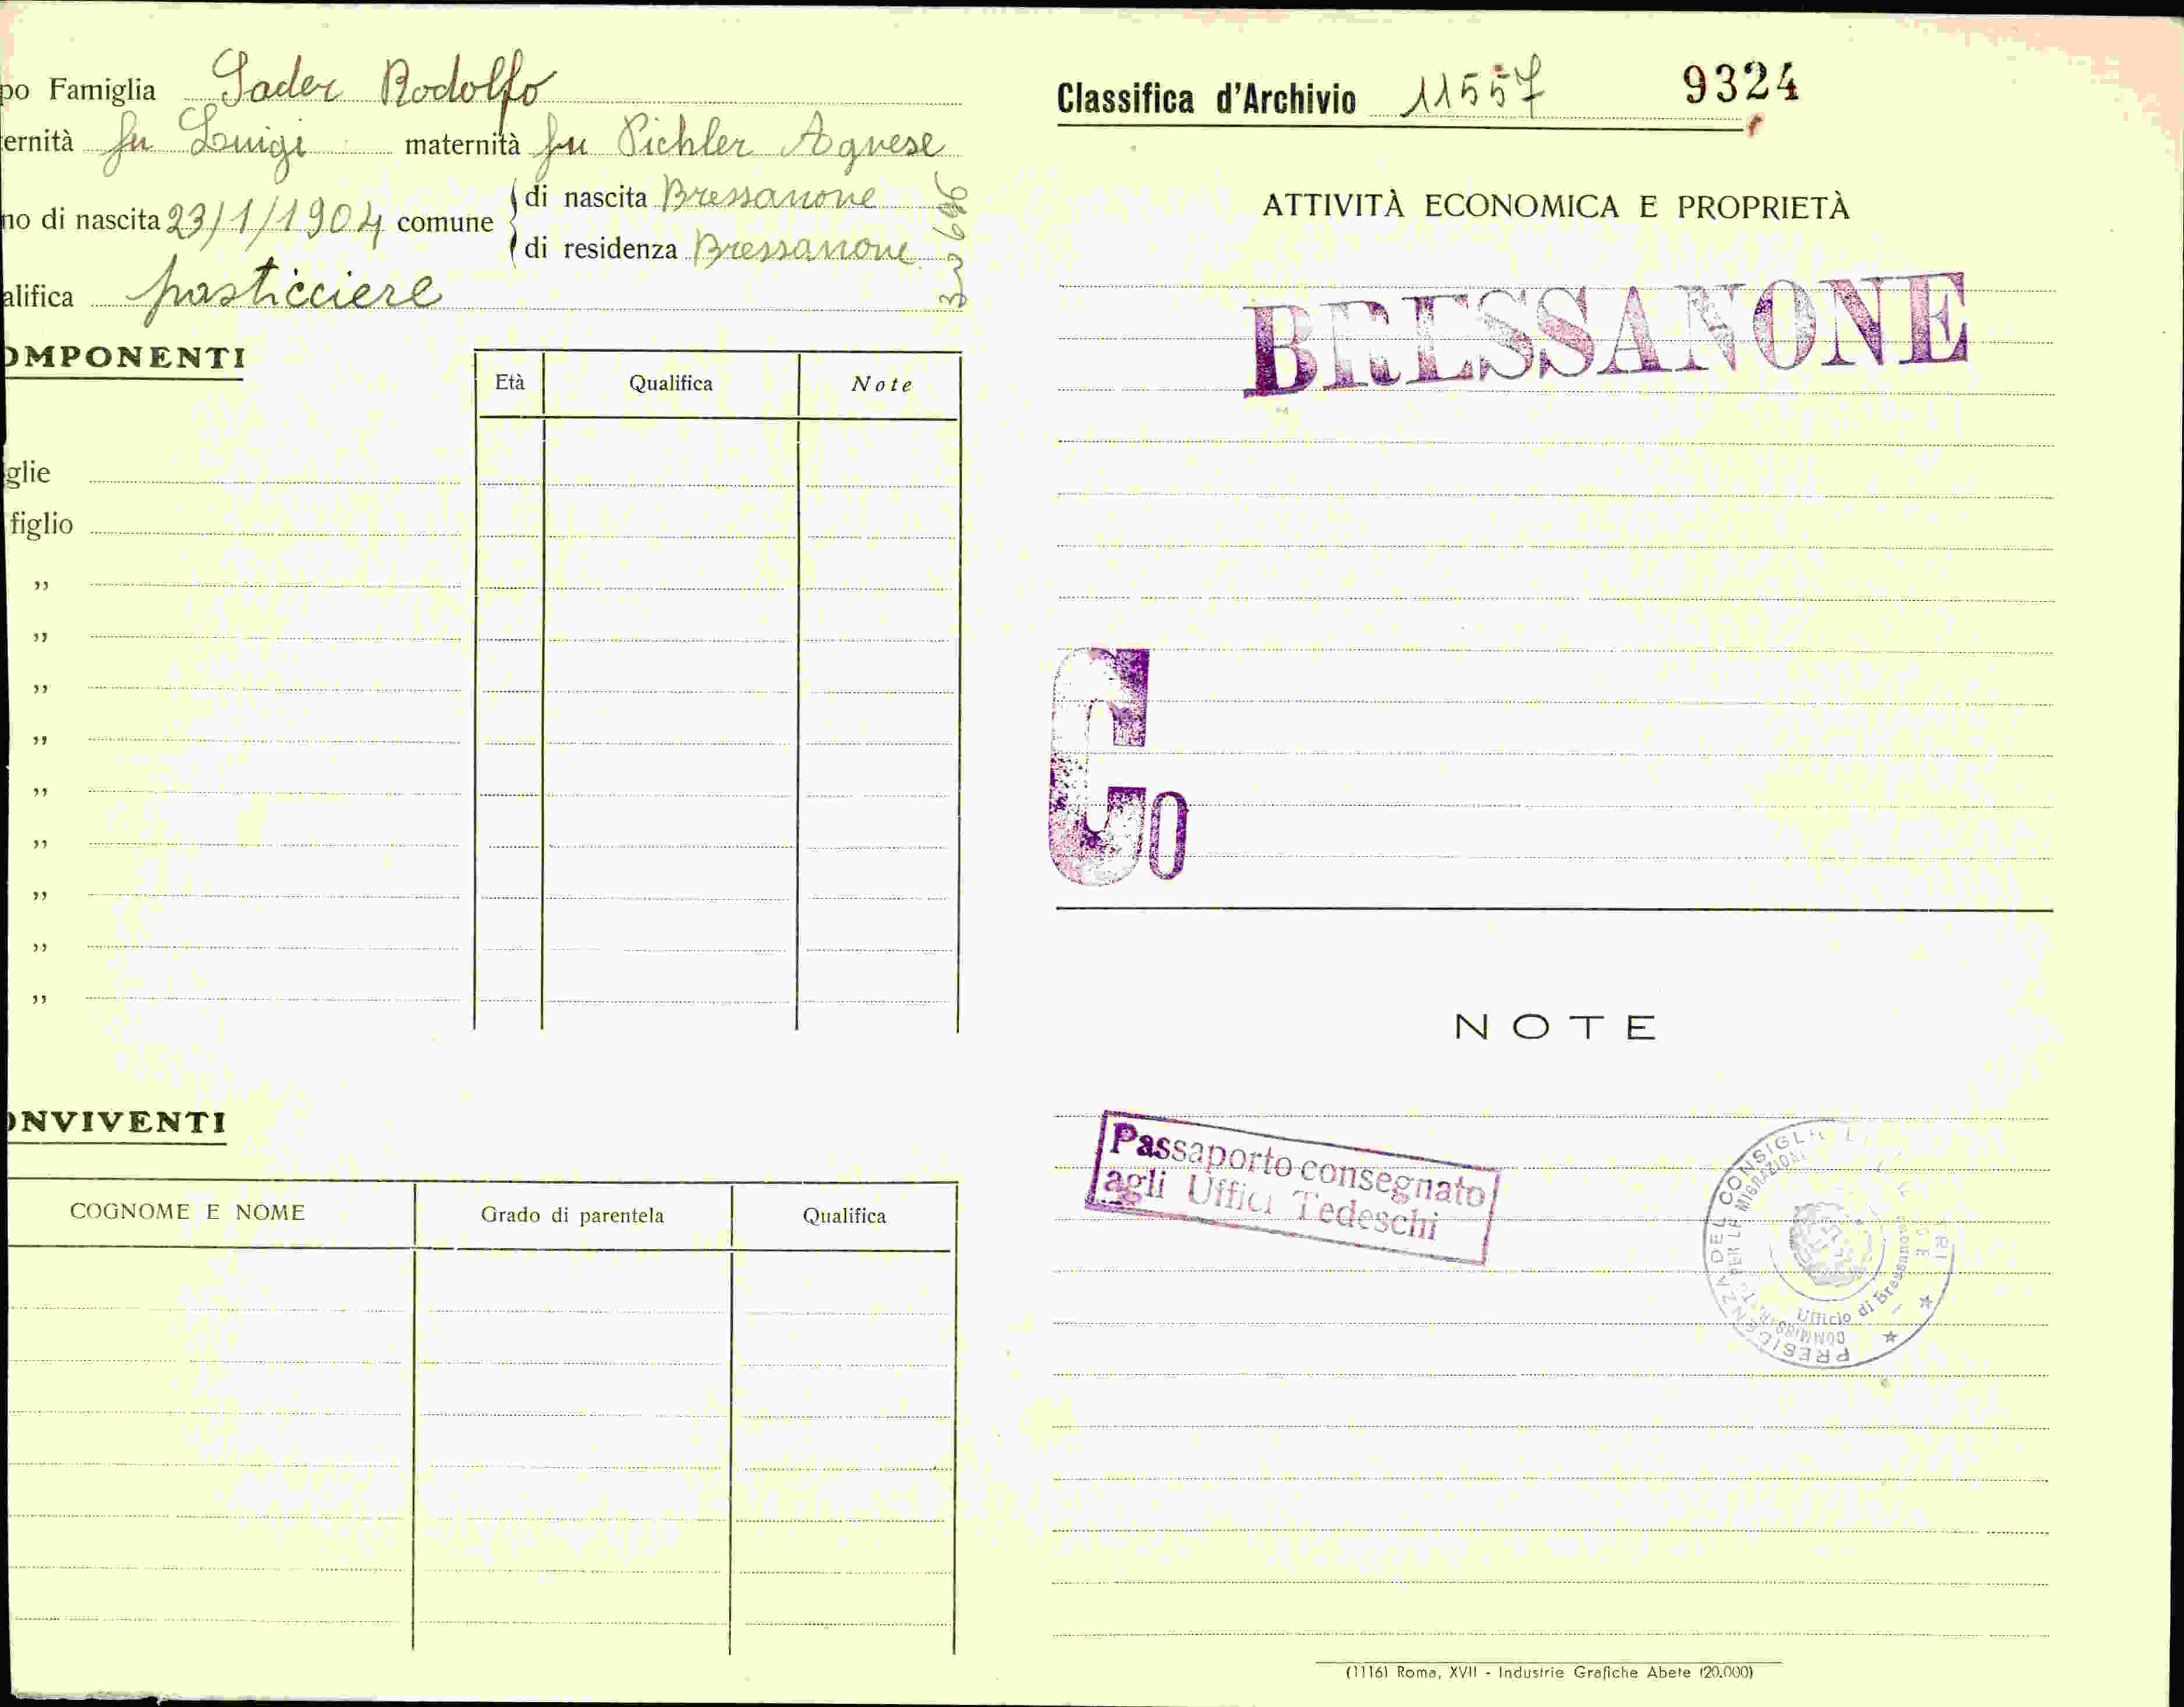 po Famiglia Sader Rodolfo
ernità fu Luigi maternità fu Pichler Agnese
no di nascita 23/1/1904 comune di nascita Bressanone
di residenza Bressanone
alifica pasticciere
OMPONENTI
Età Qualifica Note
glie
figlio
„
„
„
„
„
„
„
„
„
ONVIVENTI
COGNOME E NOME Grado di parentela Qualifica
Classifica d'Archivio 11557 9324
ATTIVITÀ ECONOMICA E PROPRIETÀ
BRESSANONE
Go
NOTE
Passaporto consegnato
agli Uffici Tedeschi
PRESIDENZA DEL CONSIGLIO
PER LE MIGRAZIONI
Ufficio di Bressanone
(1116) Roma, XVII - Industrie Grafiche Abete (20.000)